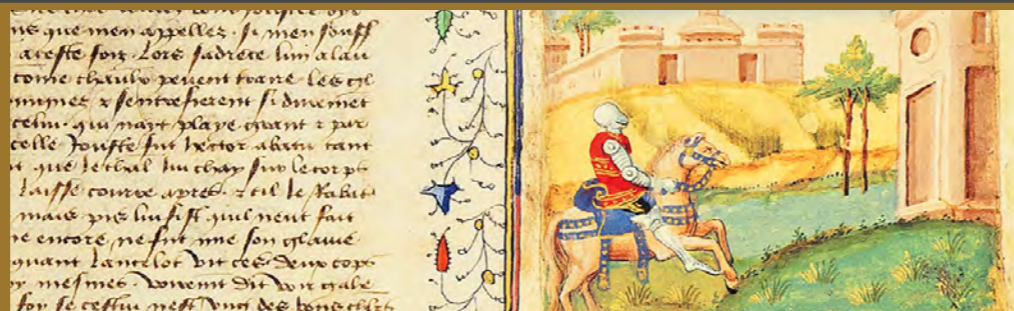 que men appelles. si men souff
aceste fois. Lors sadrece lun a lau
come chaulx peuent traire les
sentrefierent si duremet
celui qui nayt playe grant z par
celle Jouste fut hector abatu tant
que le chal luy chay sur le corps
laisse courre apres. z cil le Rabat
mais pis luy fist quil neut fait
encore ne fut mie son glaiue
quant Lancelot vit ces deux cops
mesmes. vrayement dit
foy se cestui nest vng des bons